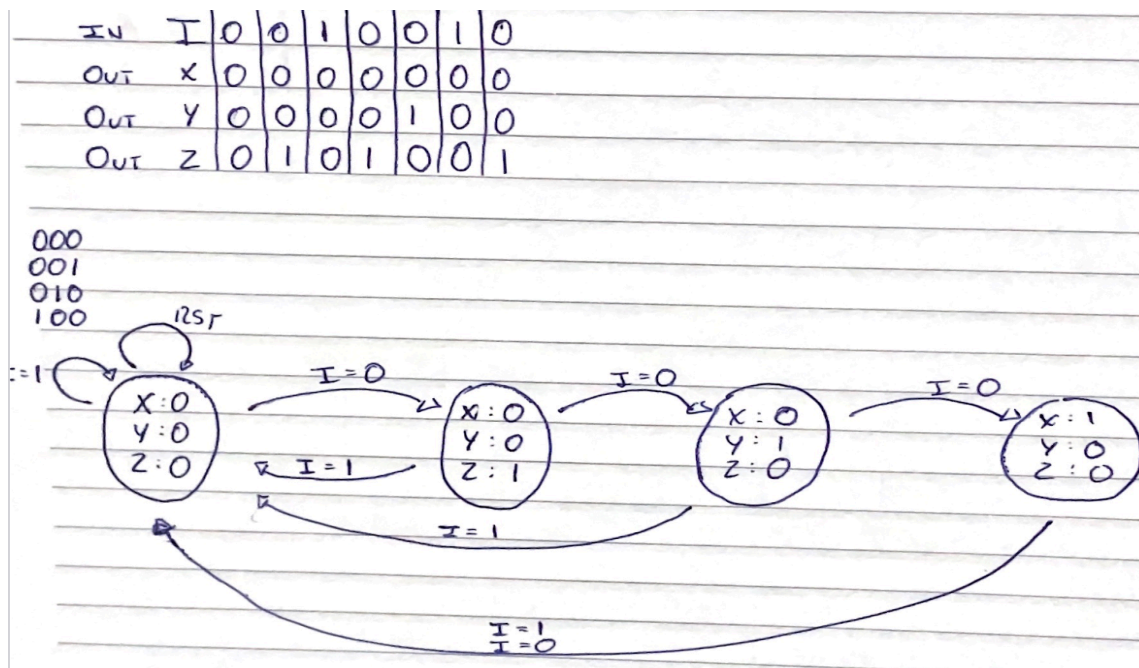 IN I 0 0 1 0 0 1 0
OUT X 0 0 0 0 0 0 0
OUT Y 0 0 0 0 1 0 0
OUT Z 0 1 0 1 0 0 1
000
001
010
100
RST
=1
I=0
I=0
I=0
X:0
Y:0
Z:0
X:0
Y:0
Z:1
X:0
Y:1
Z:0
X:1
Y:0
Z:0
I=1
I=1
I=1
I=0